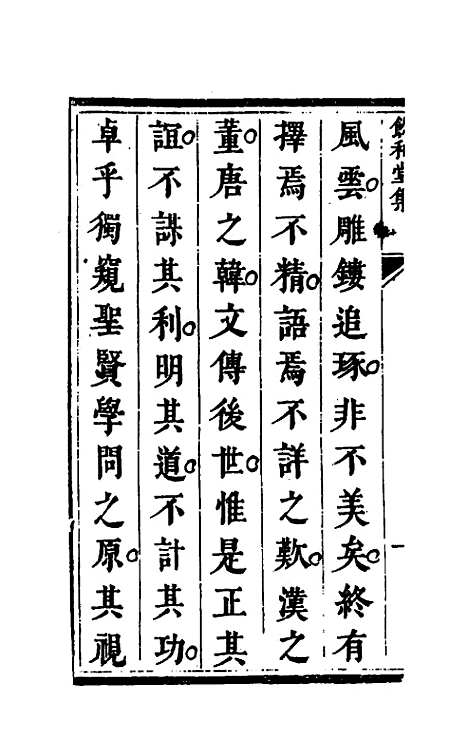 飲和堂集
風雲。雕鏤追琢。非不美矣。終有
擇焉不精。語焉不詳之歎。漢之
董。唐之韓。文傳後世。惟是正其
誼。不謀其利。明其道。不計其功。
卓乎獨窺聖賢學問之原。其視